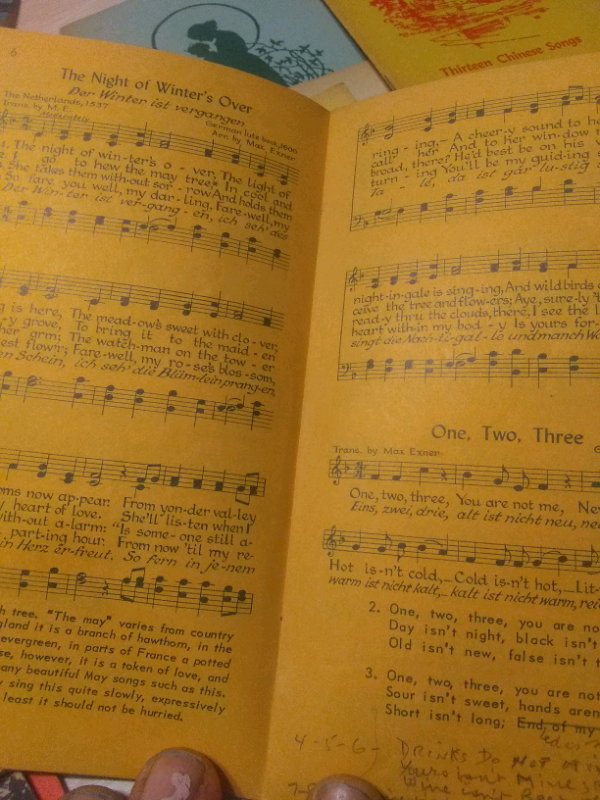 Thirteen Chinese Songs
6
The Night of Winter's Over
Der Winter ist vergangen
The Netherlands, 1537
Trans. by M. E.
German lute book, 1600
Arr. by Max Exner
Moderately
The night of win-ter's o - ver, The light of
I go to hew the may tree* In cool and
She takes them with-out sor - row And holds them
So fare you well, my dar - ling, Fare-well, my
Der Win - ter ist ver-gang - en, ich seh' des
g is here, The mead-ow's sweet with clo - ver,
y grove, To bring it to the maid - en
her arm; The watch-man on the tow - er
est flown; Fare-well, my ro - se's blos - som,
en Schein, ich seh' die Blüm-lein prang-en,
oms now ap-pear. From yon-der val-ley
heart of love. She'll lis-ten when I
with-out a-larm: "Is some-one still a-
part-ing hour. From now 'til my re-
in Herz er-freut. So fern in je-nem
h tree. "The may" varies from country
gland it is a branch of hawthorn, in the
evergreen, in parts of France a potted
se, however, it is a token of love, and
any beautiful May songs such as this.
y sing this quite slowly, expressively
least it should not be hurried.
ring - ing, A cheer-y sound to he
call her And to her win-dow
broad, there? He'd best be on his
turn - ing You'll be my guid-ing
la - le, da ist gar lu-stig
night-in-gale is sing-ing, And wild birds
ceive the tree and flow-ers; Aye, sure-ly
read-y thru the clouds, there, I see the l
heart with-in my bod - y Is yours for-
singt die Nach-ti-gal-le und manch Wa
One, Two, Three
Trans. by Max Exner
One, two, three, You are not me, Ne
Eins, zwei, drie, alt ist nicht neu, ne
Hot is-n't cold, Cold is-n't hot, Lit-
warm ist nicht kalt, kalt ist nicht warm, rei
2. One, two, three, you are no
Day isn't night, black isn't
Old isn't new, false isn't t
3. One, two, three, you are not
Sour isn't sweet, hands aren
Short isn't long; End of my
4-5-6- Drinks Do Not
Yours isn't Mine